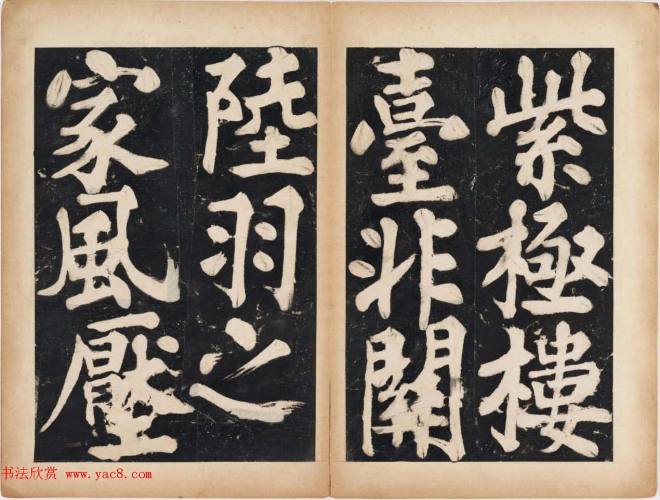 紫極樓
臺非關
陸羽之
家風壓
书法欣赏 www.yac8.com